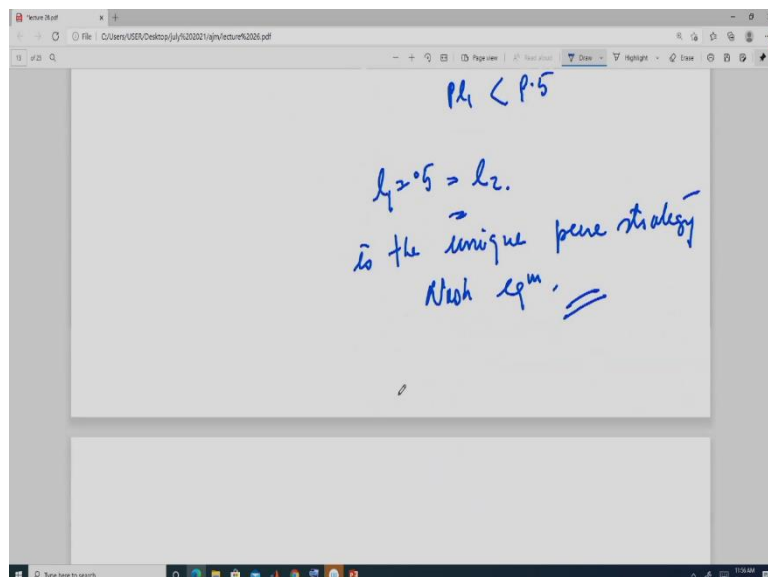 lecture 26.pdf
File C:/Users/USER/Desktop/july%202021/ajm/lecture%2026.pdf
of 23 Page view Read aloud Draw Highlight Erase
Pl₁ < P.5
l₁ = .5 = l₂.
is the unique pure strategy
Nash eqᵐ.
Type here to search 11:56 AM